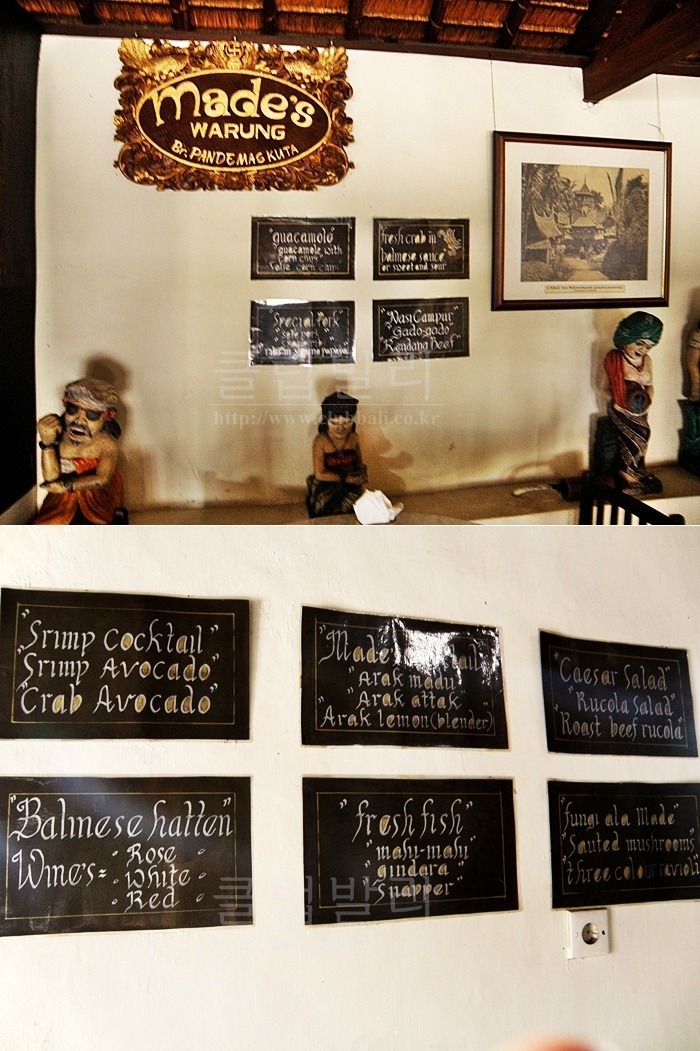 Made's
WARUNG
Br. PANDE MAS KUTA
"guacamole"
guacamole with
corn chips
fresh crab in
balinese sauce
or sweet and sour
"Special Pork"
"Nasi Campur"
"Gado-gado"
"Rendang beef"
클럽발리
http://www.clubbali.co.kr
"Srimp cocktail"
"Srimp Avocado"
"Crab Avocado"
"Made
"Arak madu"
"Arak attak"
"Arak lemon (blender)
"Caesar Salad"
"Rucola Salad"
"Roast beef rucola"
"Balinese hatten"
Wine's= - Rose -
- White -
- Red -
"fresh fish"
"mahi-mahi
gindara
snapper"
"fungi ala Made"
"Sauted mushrooms
"three colour ravioli
클럽발리